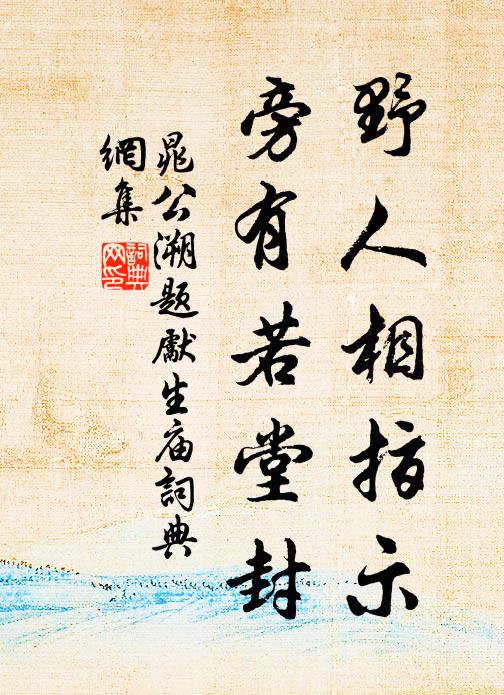 野人相指示
旁有若堂封
晁公溯题獻生庙詞典
網集
詞典
网印